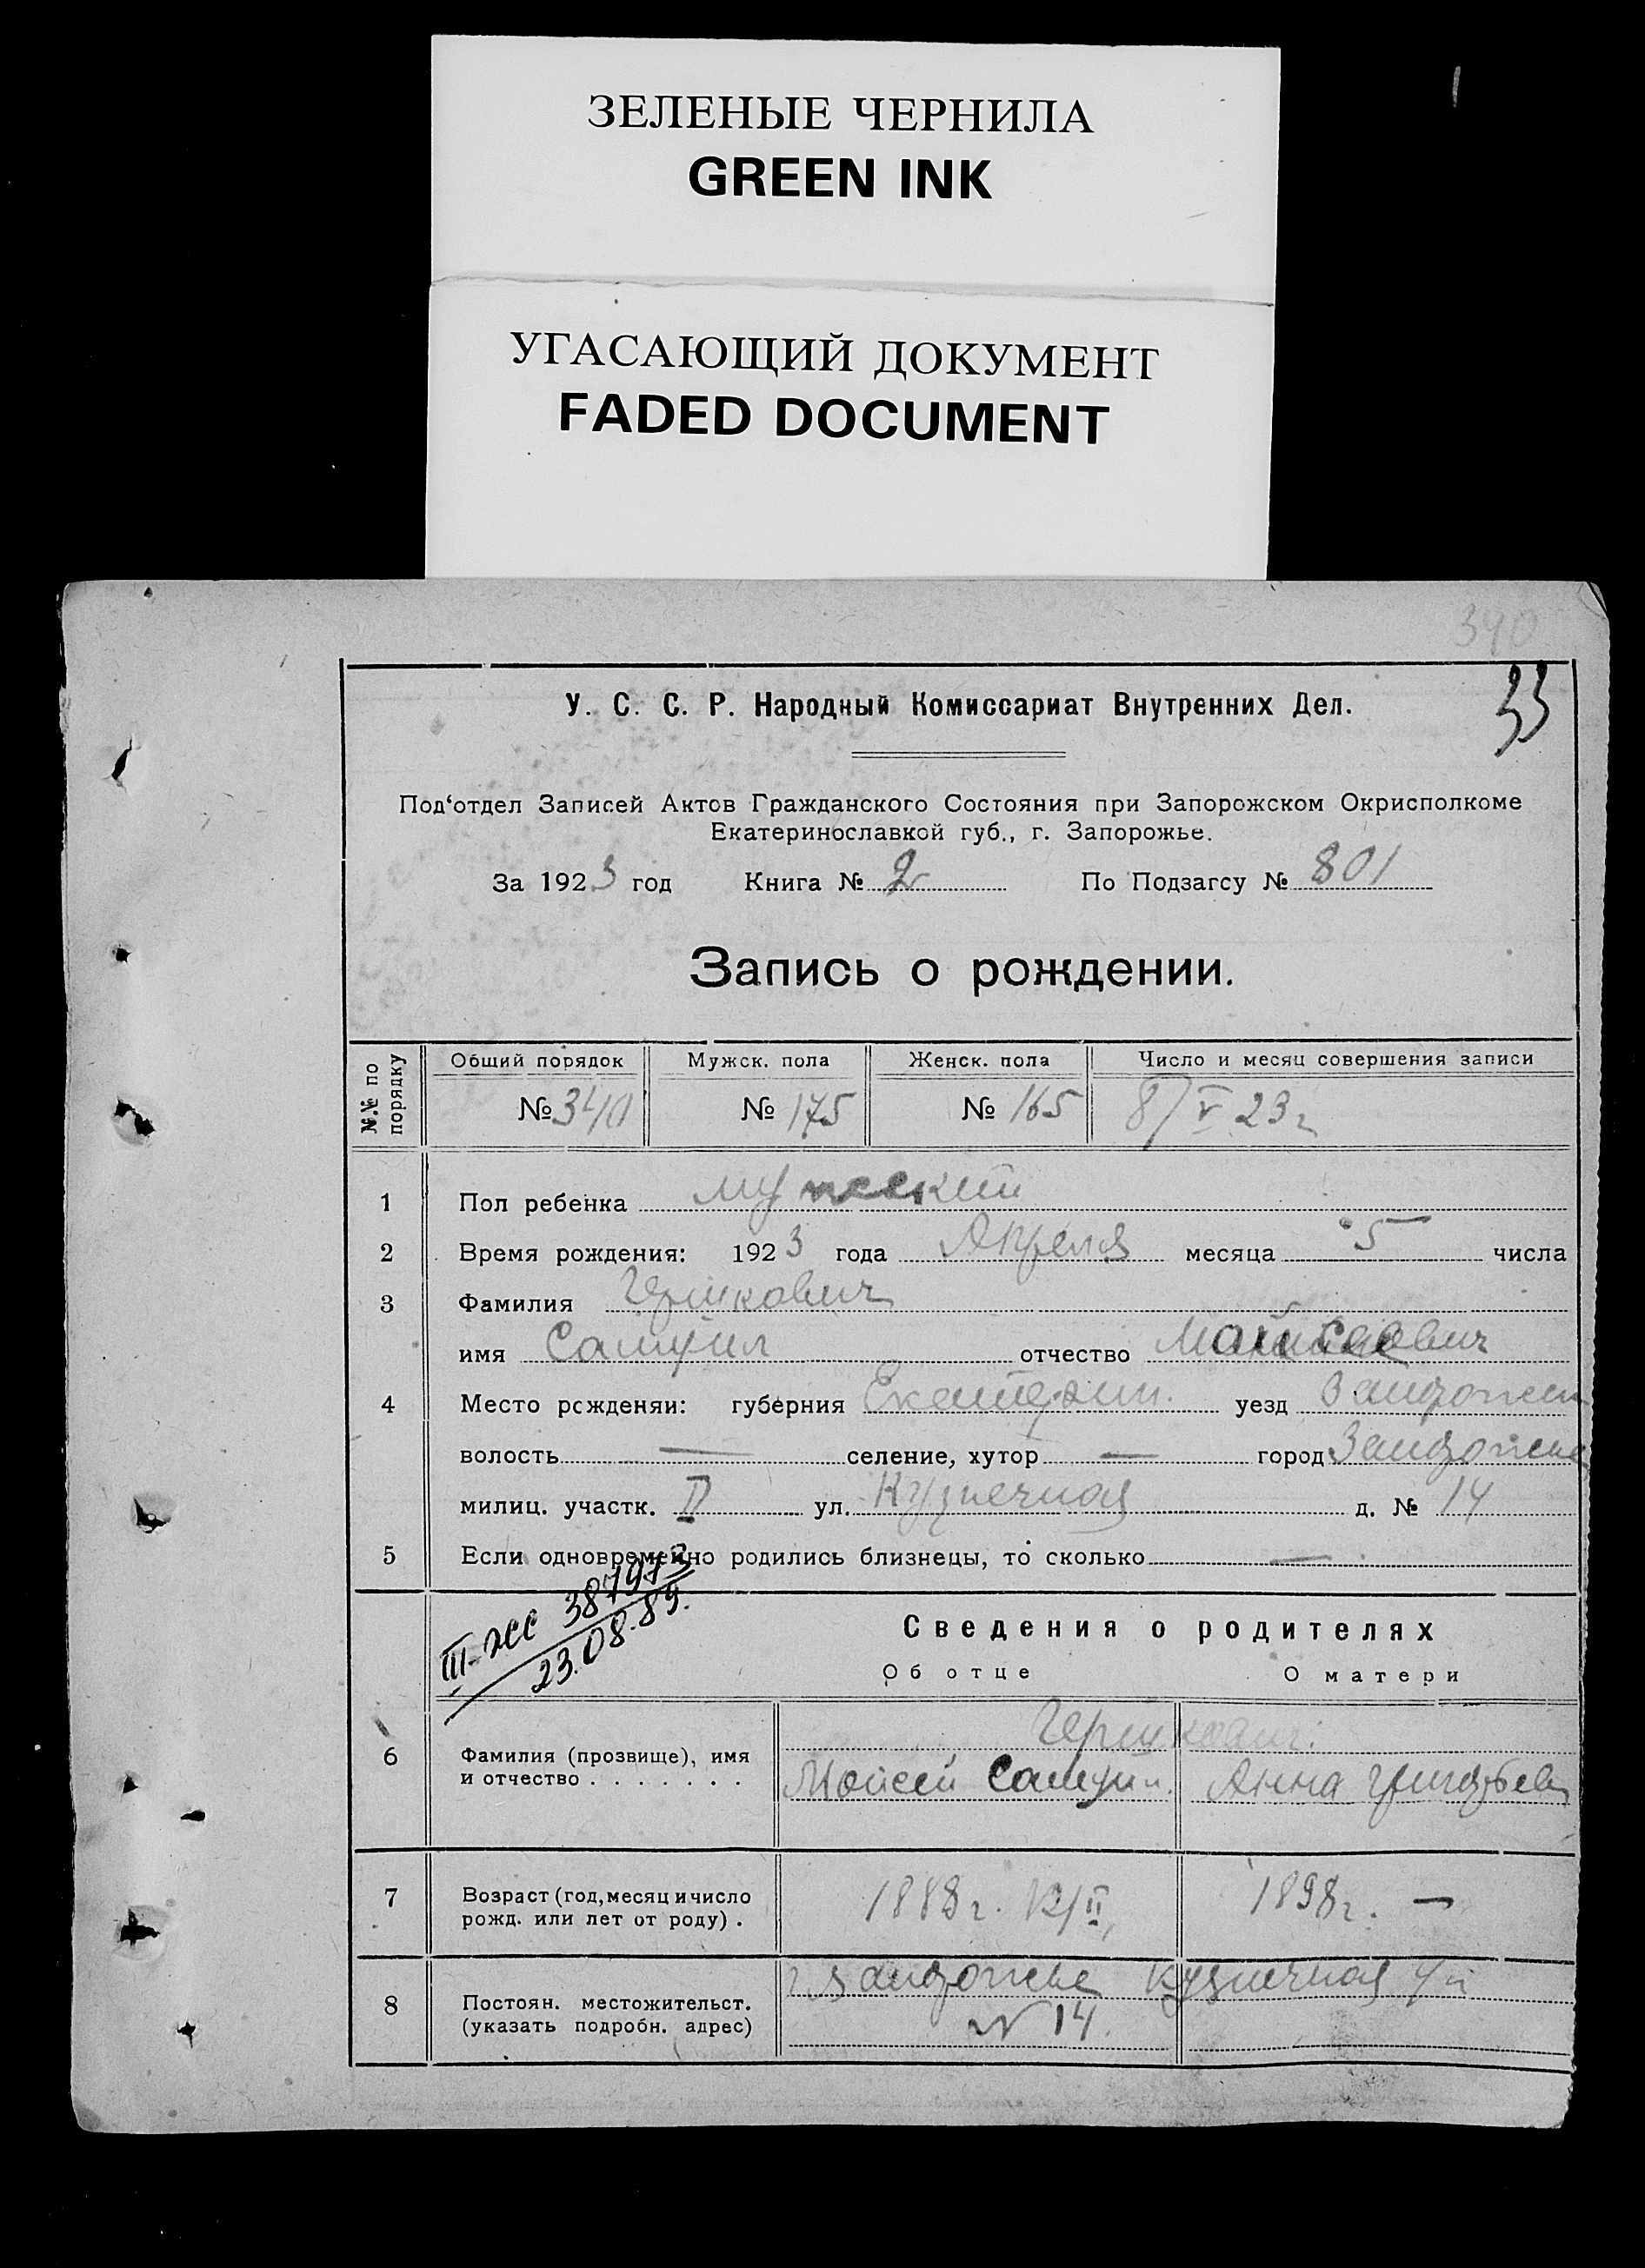 ЗЕЛЕНЫЕ ЧЕРНИЛА
GREEN INK
УГАСАЮЩИЙ ДОКУМЕНТ
FADED DOCUMENT
340
33
У. С. С. Р. Народный Комиссариат Внутренних Дел.
Под‘отдел Записей Актов Гражданского Состояния при Запорожском Окрисполкоме
Екатеринославкой губ., г. Запорожье.
За 1923 год Книга № 2 По Подзагсу № 801
Запись о рождении.
№.№ по порядку Общий порядок Мужск. пола Женск. пола Число и месяц совершения записи
№ 340 № 175 № 165 8/V 23 г
1 Пол ребенка мужской
2 Время рождения: 1923 года Апреля месяца 5 числа
3 Фамилия Гершкович
имя Самуил отчество
4 Место рсжденяи: губерния Екатерин. уезд Запорожск
волость — селение, хутор — город Запорожье
милиц. участк. II ул. Кузнечная д. № 14
5 Если одновременно родились близнецы, то сколько —
III-ЖС 387973
23.08.89.
Сведения о родителях
Об отце О матери
Гершкович.
6 Фамилия (прозвище), имя
и отчество . . . . . . . Моисей Самуил. Анна Григорьев
7 Возраст (год, месяц и число
рожд. или лет от роду) . 1898 г. —
г. Запорожье Кузнечная ул
8 Постоян. местожительст.
(указать подробн. адрес) № 14.